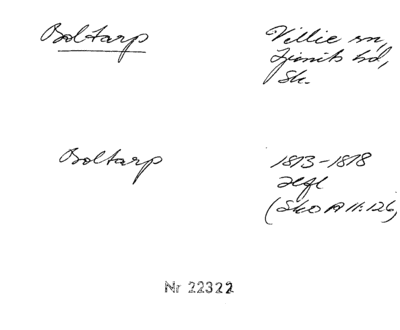 Boltarp
Villie sn,
Ljunits hd,
Sk.
Boltarp
1813-1818
Hfl
(SkO A II:126)
Nr 22322